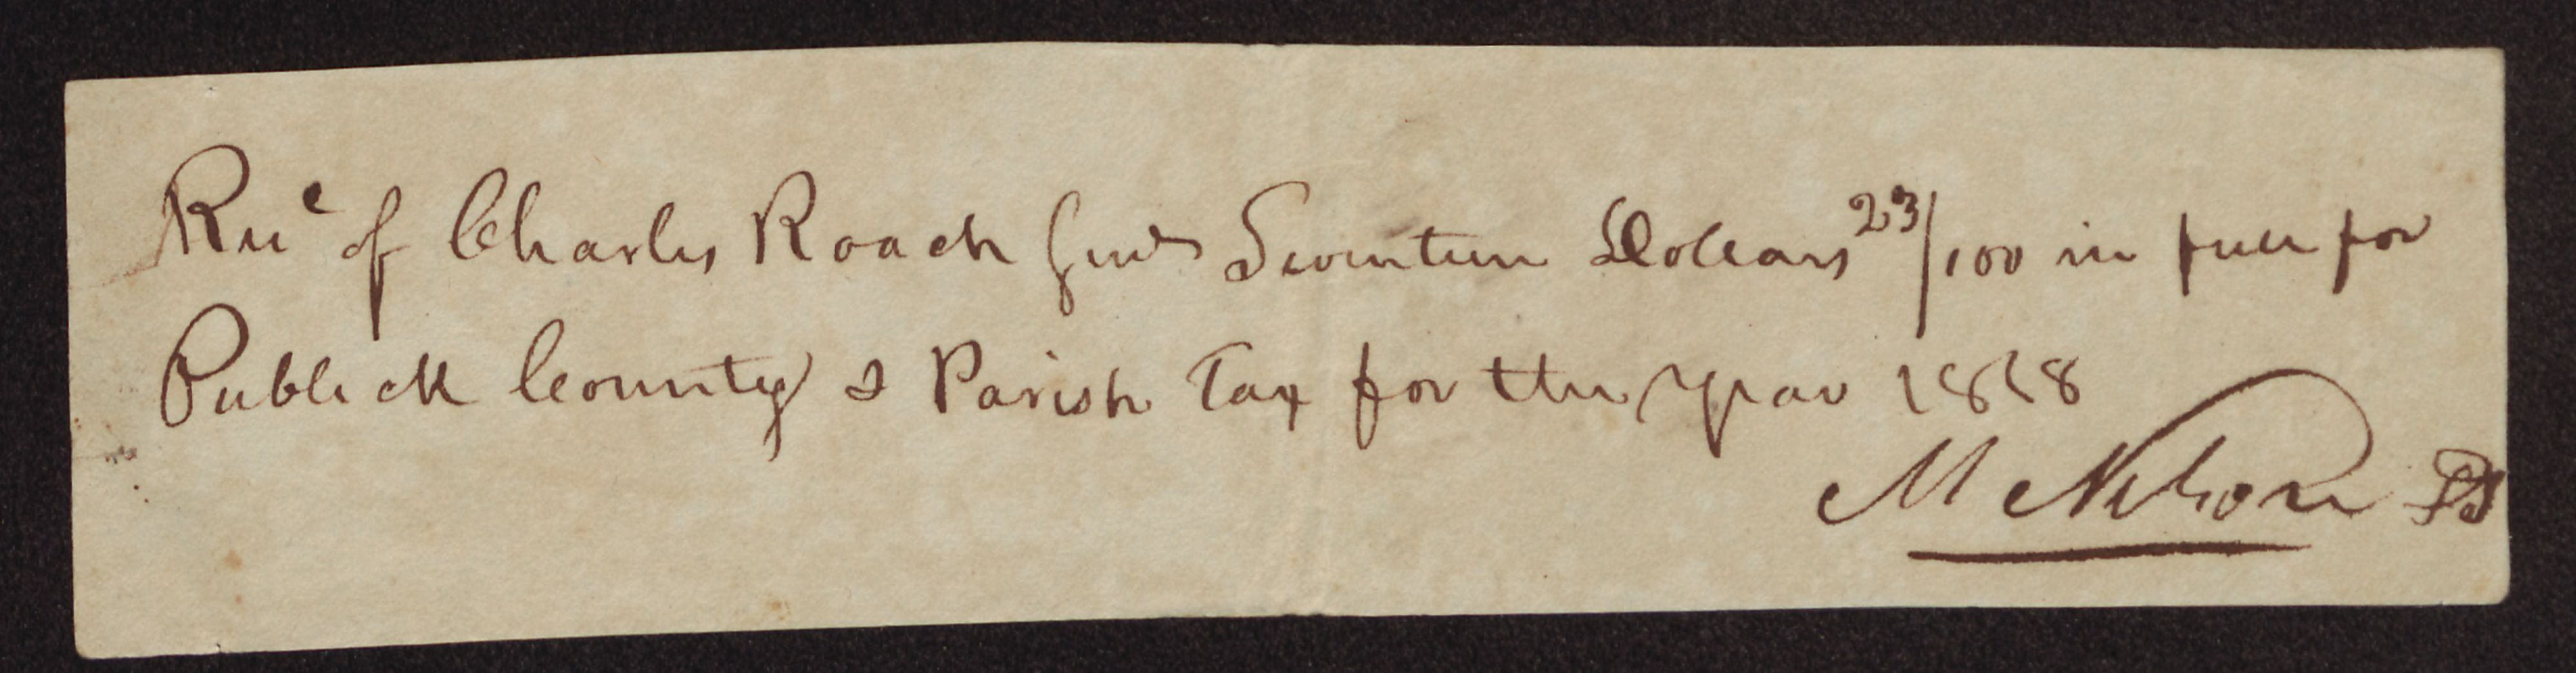 Recᵉ of Charles Roach Junr Seventeen Dollars 23/100 in full for
Publick County & Parish Tax for the year 1818
M Nelson DS